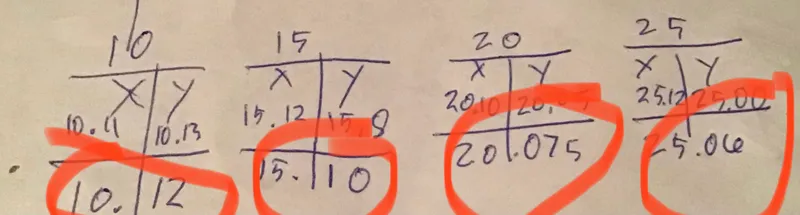 10 15 20 25
X Y X Y X Y X Y
10.11 10.13 15.12 20.10 25.12 25.00
10.12 15.10 20.075 25.06